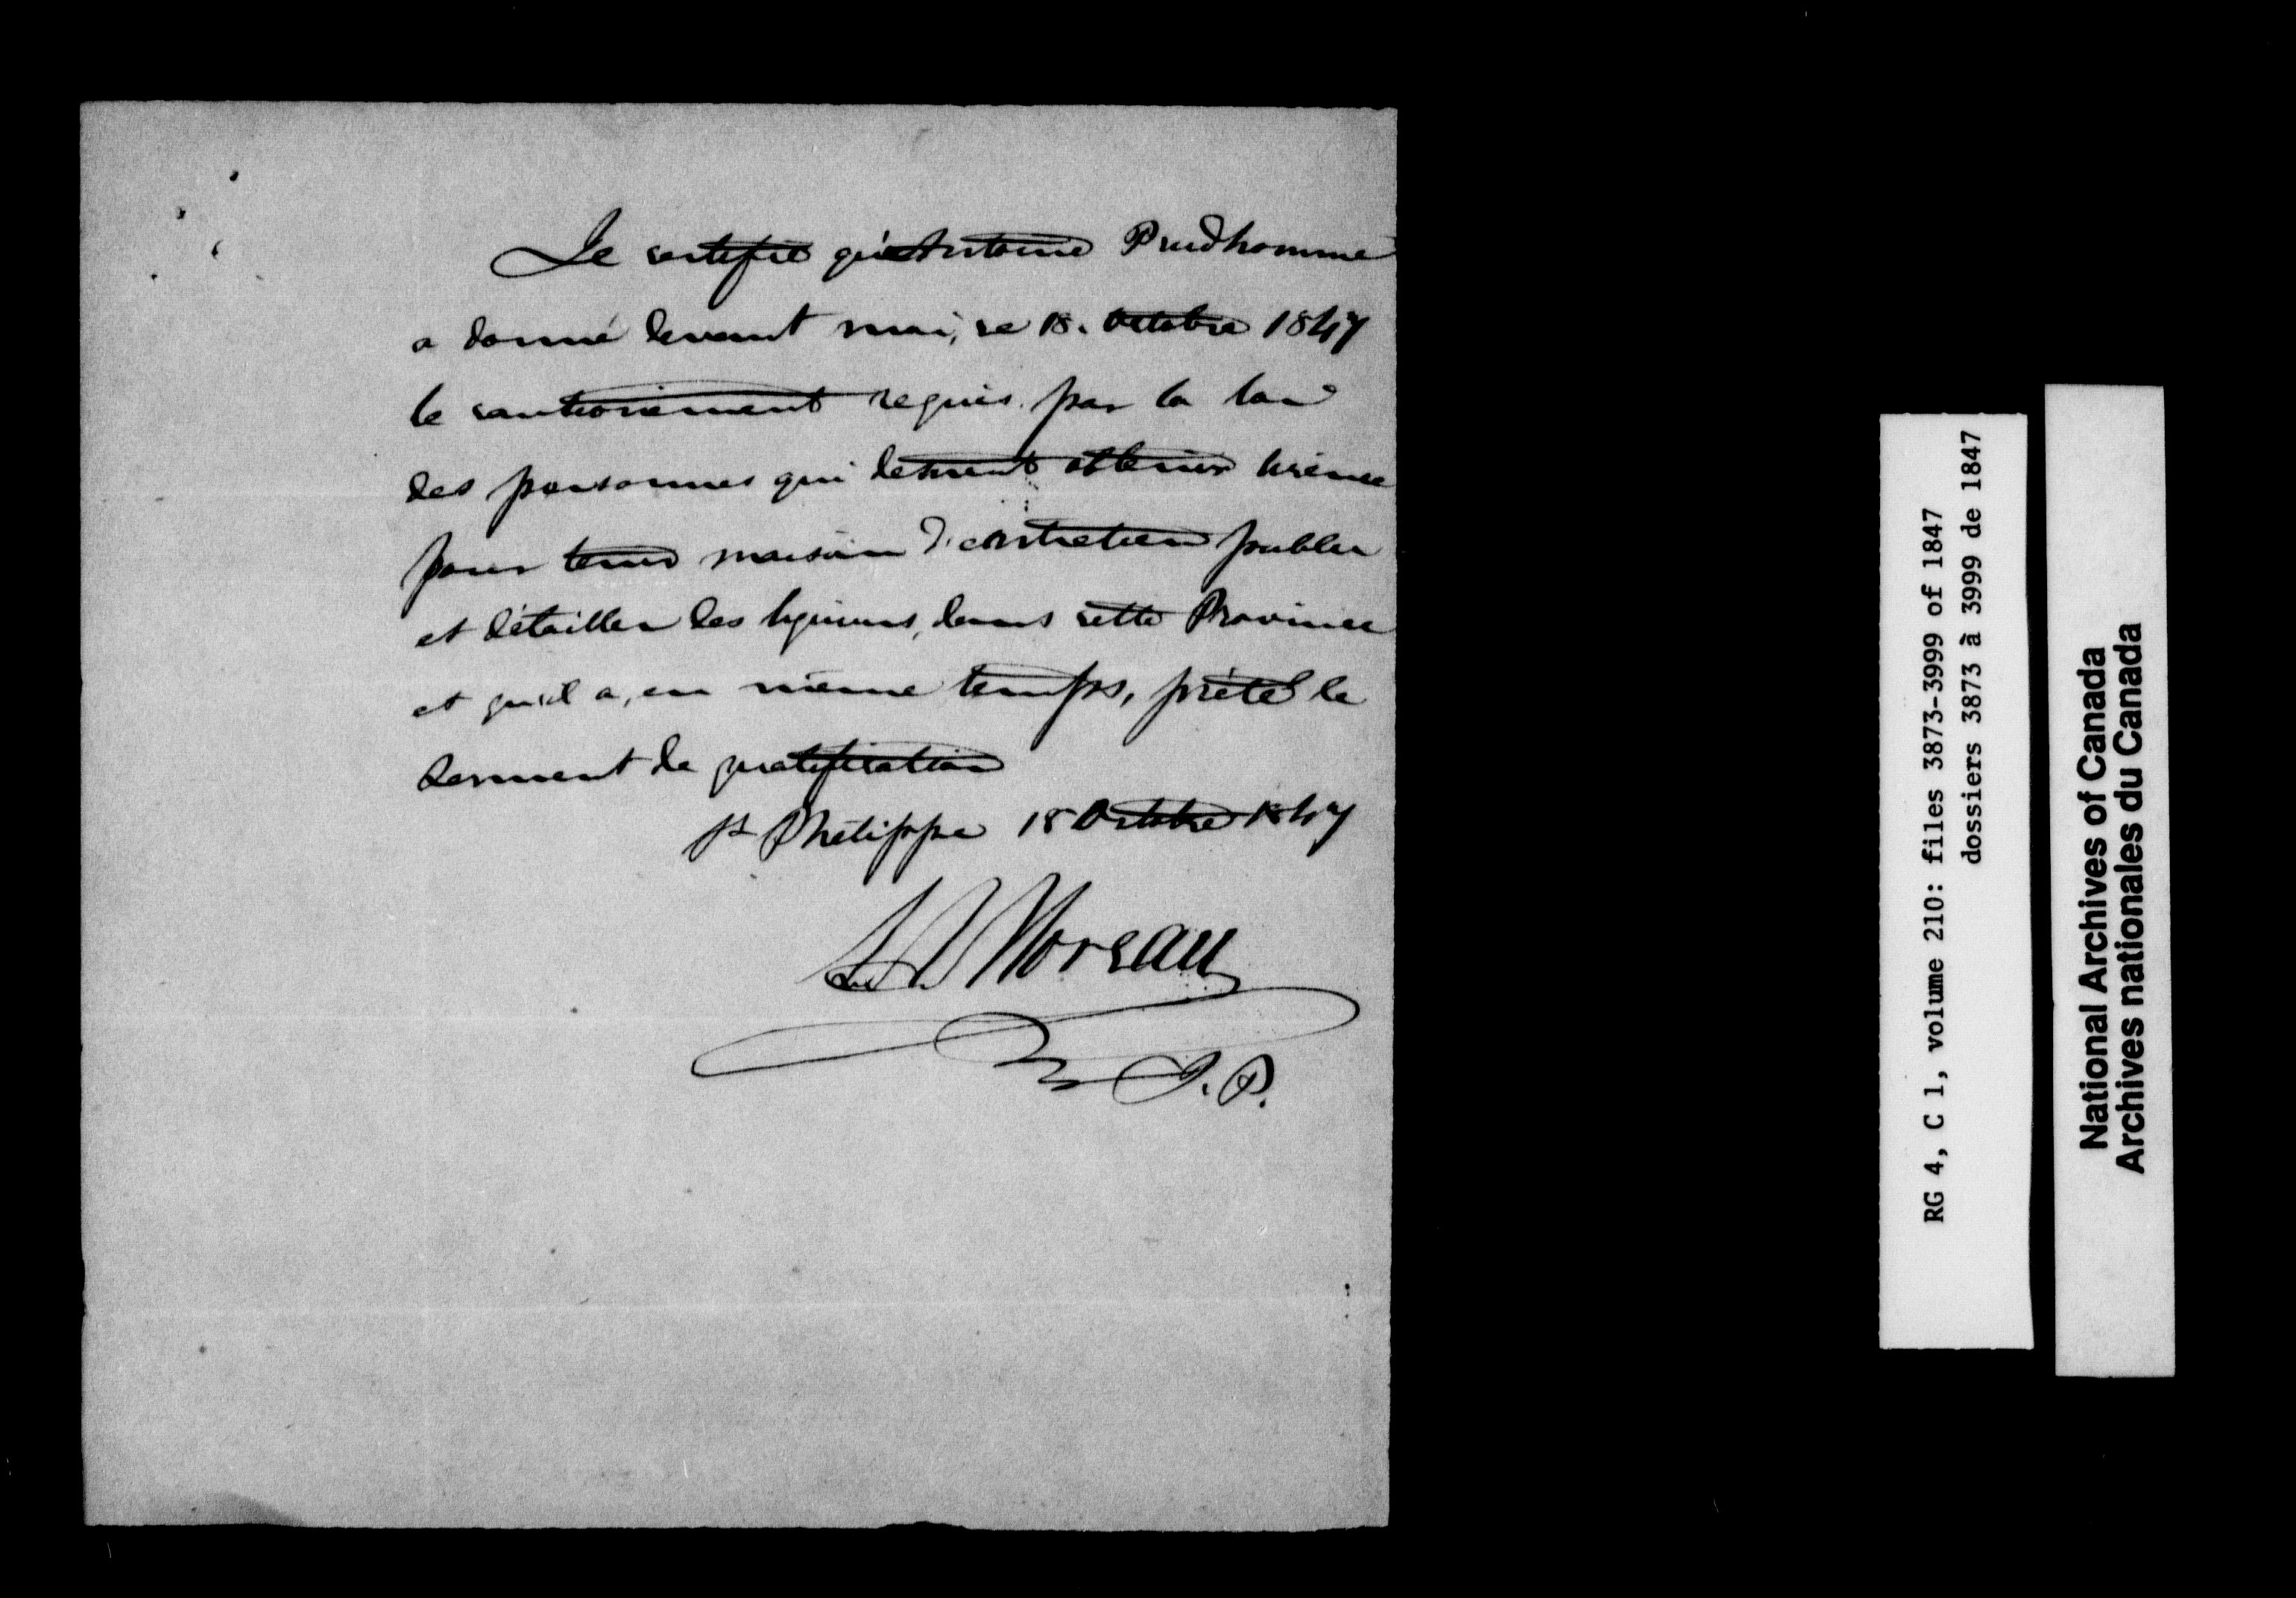 Je certifie qu'Antoine Prudhomme
a donné devant moi, ce 18. Octobre 1847
le cautionnement requis par la loi
des personnes qui desirent obtenir licence
pour tenir maison d'entretien public
et détailler des liqueurs, dans cette Province
et qu'il a, en même temps, prêté le
serment de qualification
St Philippe 18 Octobre 1847
Moreau
J.P.
RG 4, C 1, volume 210: files 3873-3999 of 1847
dossiers 3873 à 3999 de 1847
National Archives of Canada
Archives nationales du Canada